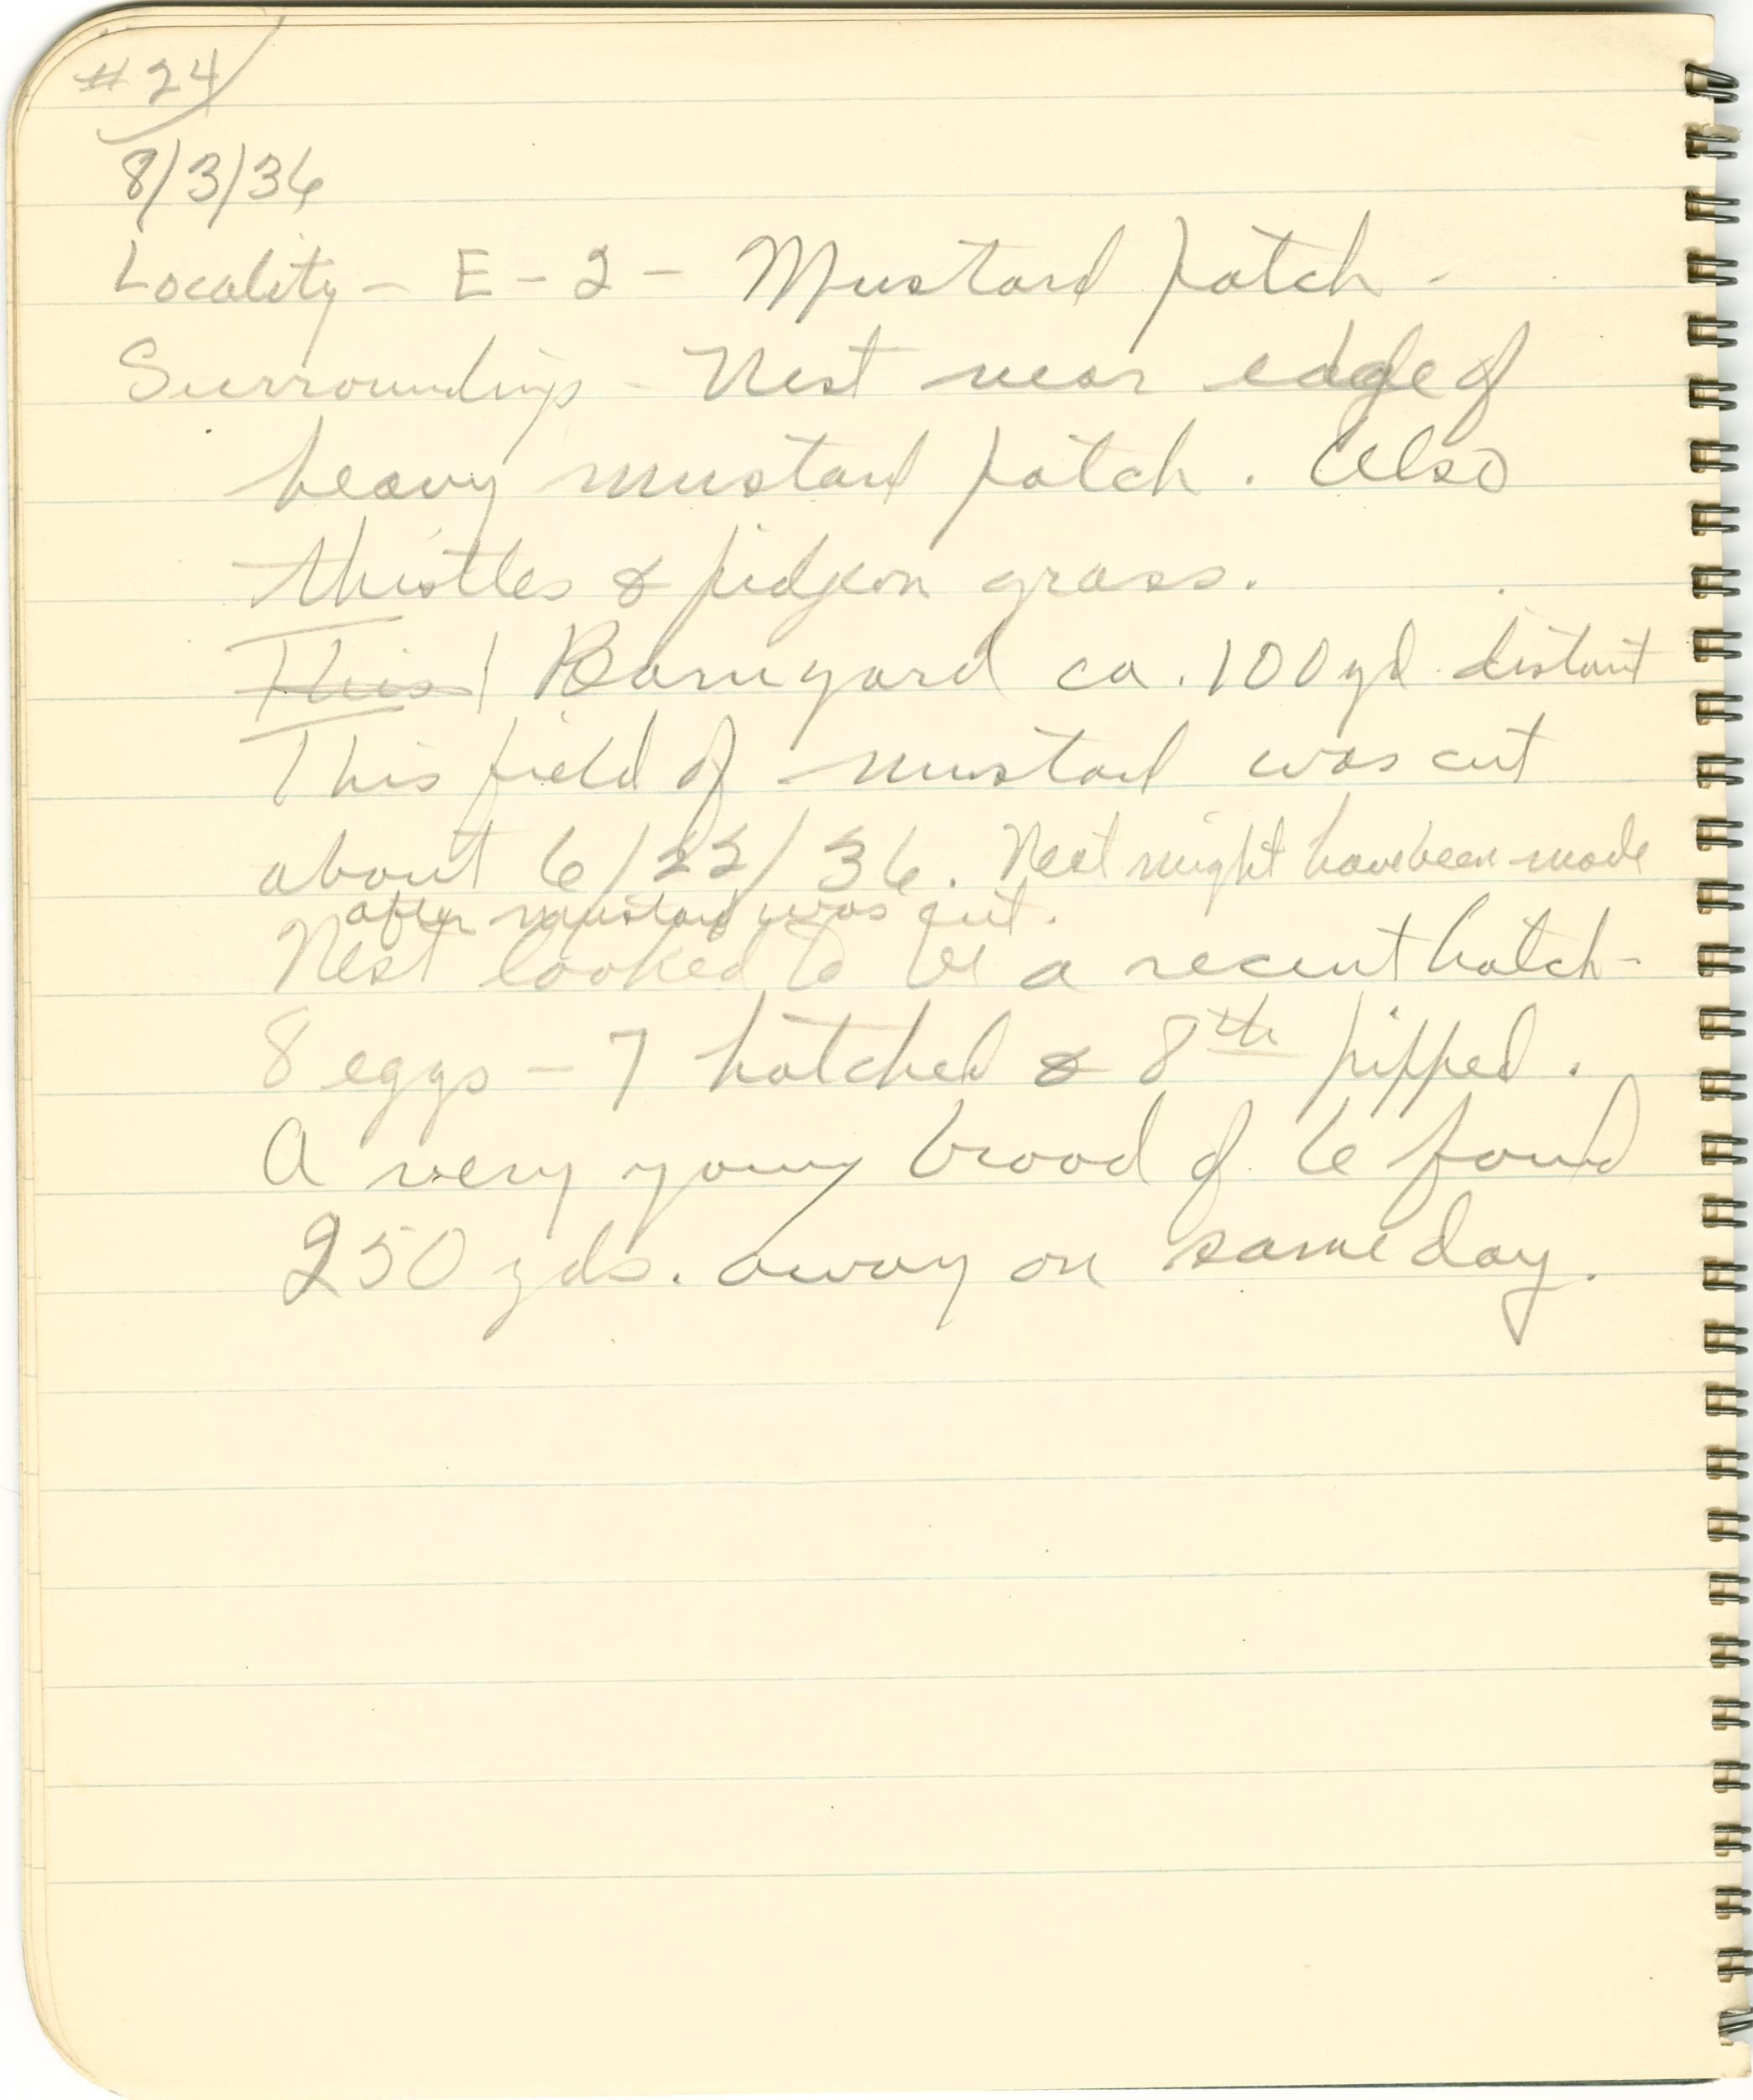 #24
8/3/36
Locality - E-2 - Mustard patch -
Surroundings - Nest near edge of
heavy mustard patch. Also
thistles & pidgeon grass.
This | Barnyard ca. 100 yd. distant
This field of mustard was cut
about 6/22/36. Nest might have been made
after mustard was cut.
Nest looked to be a recent hatch -
8 eggs - 7 hatched & 8th pipped.
A very young brood of 6 found
250 yds. away on same day.